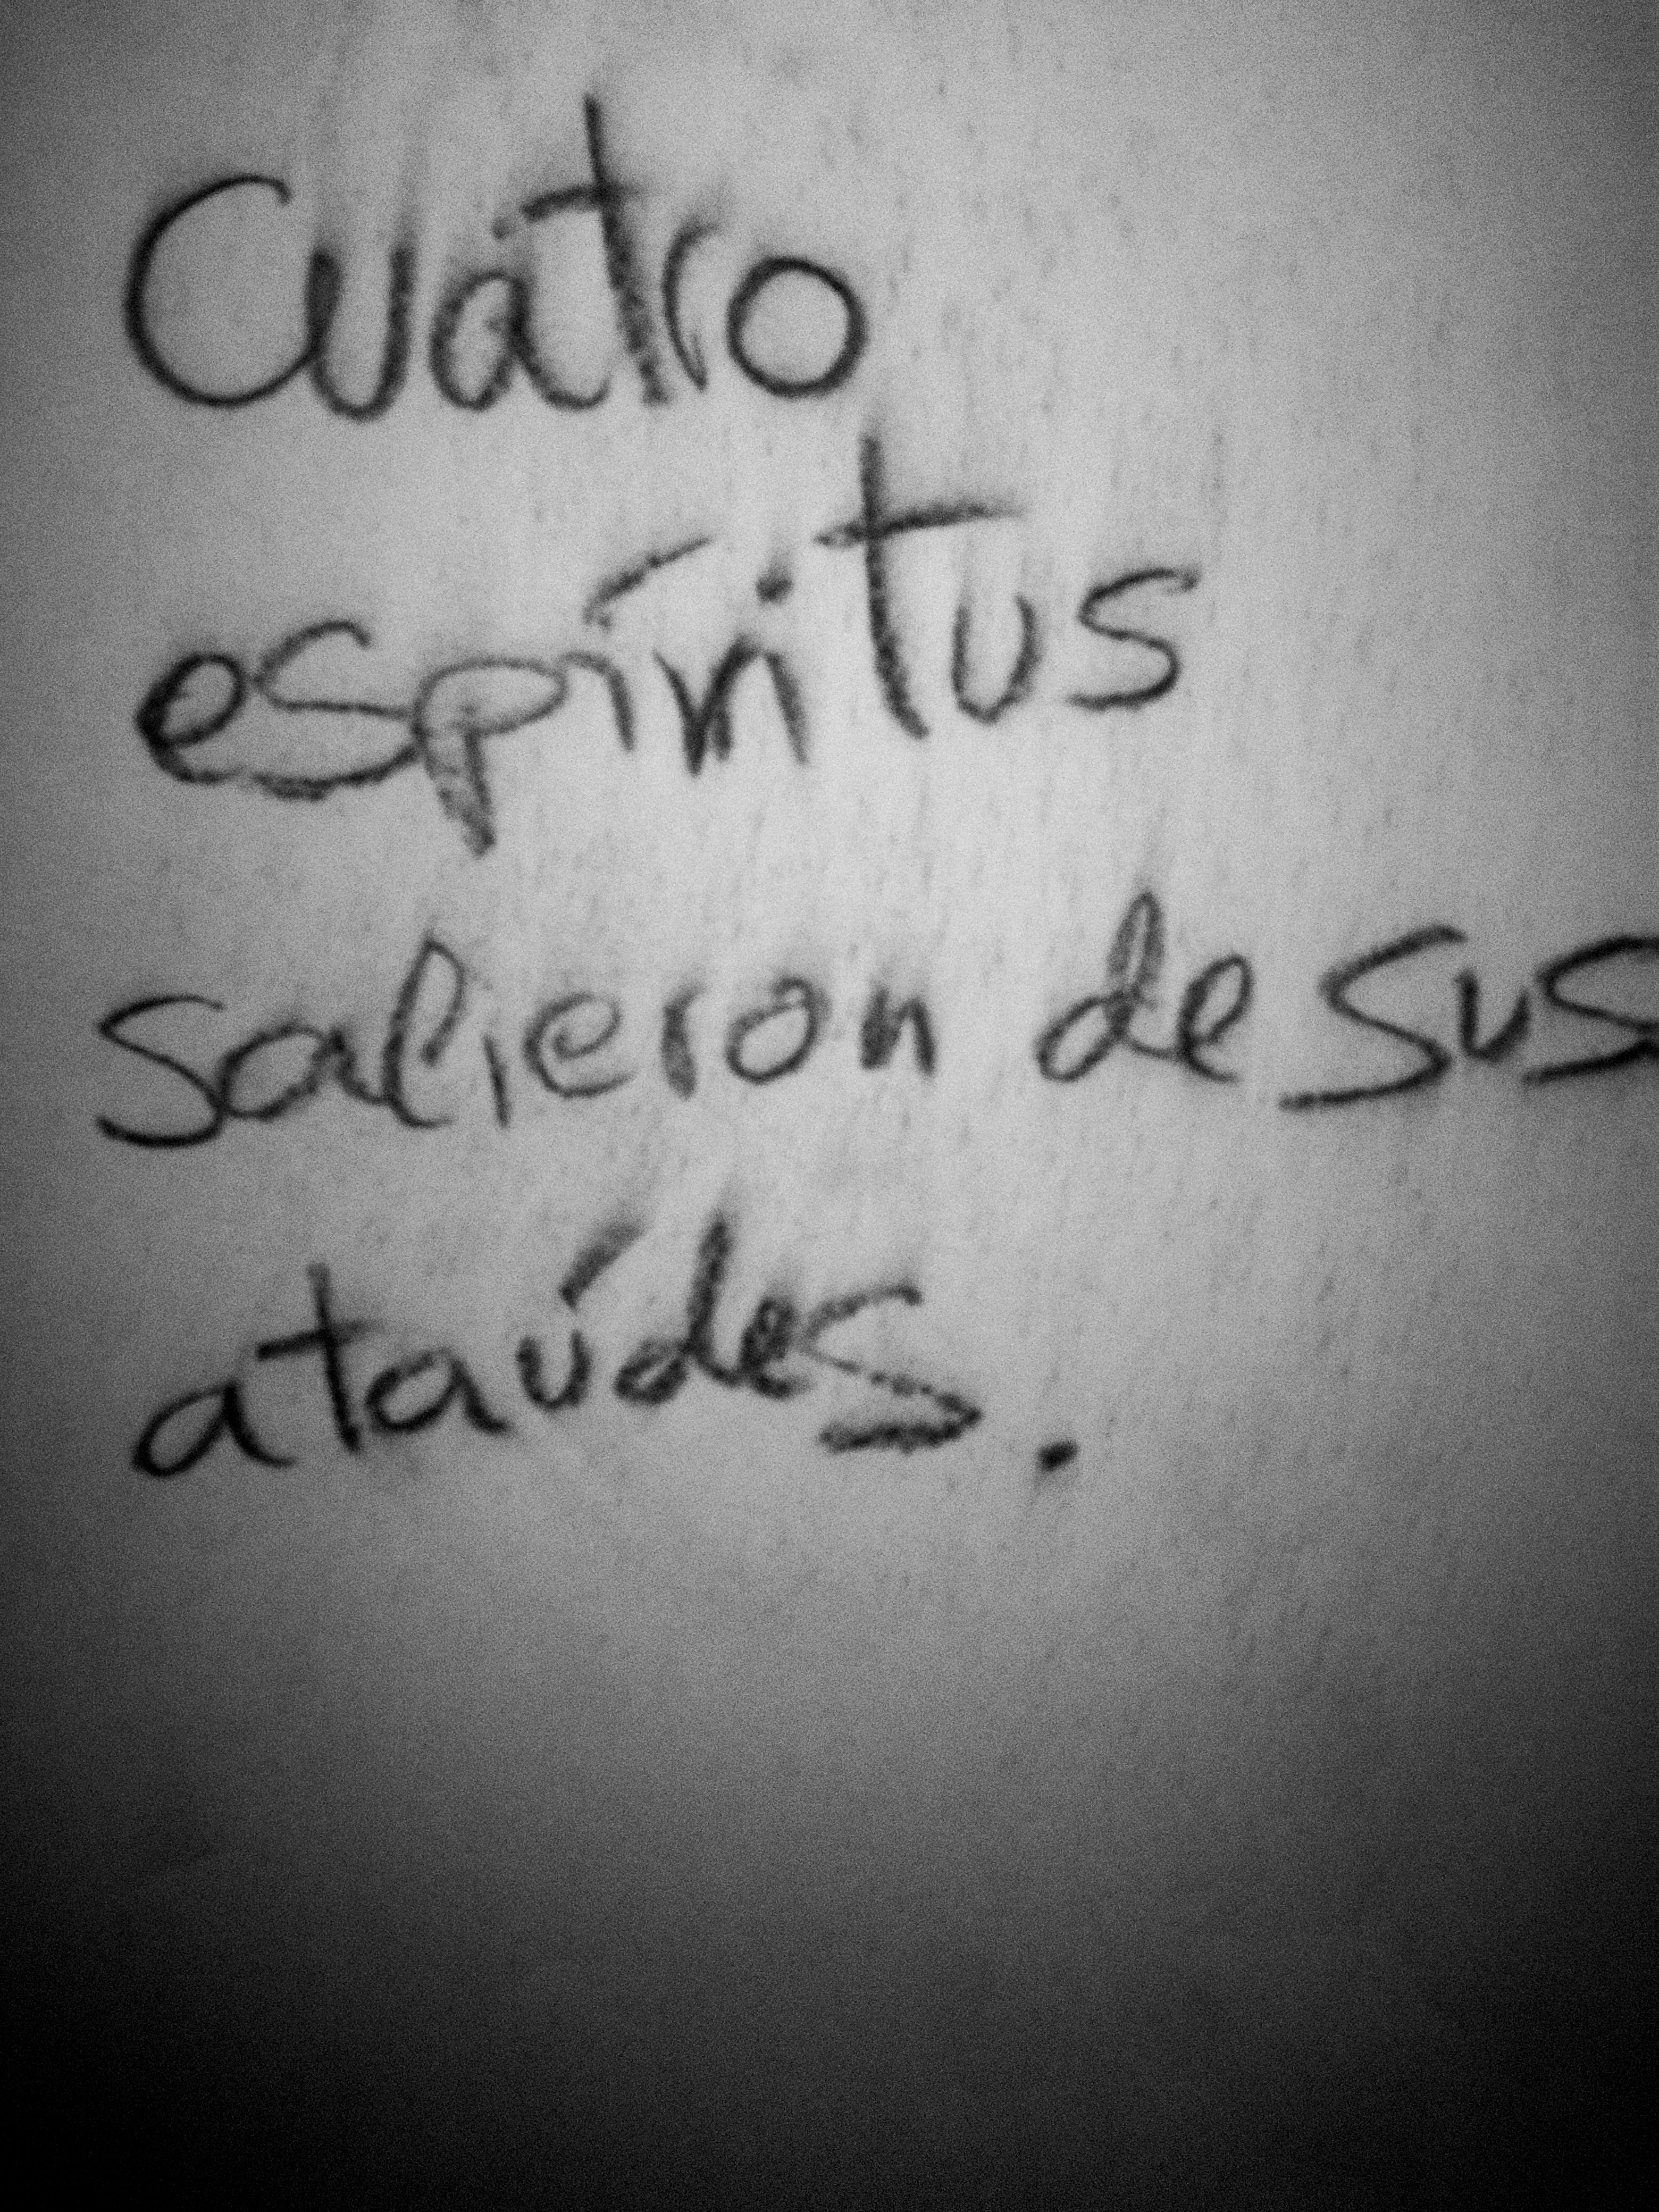 Cuatro
espíritus
salieron de sus
ataúdes.